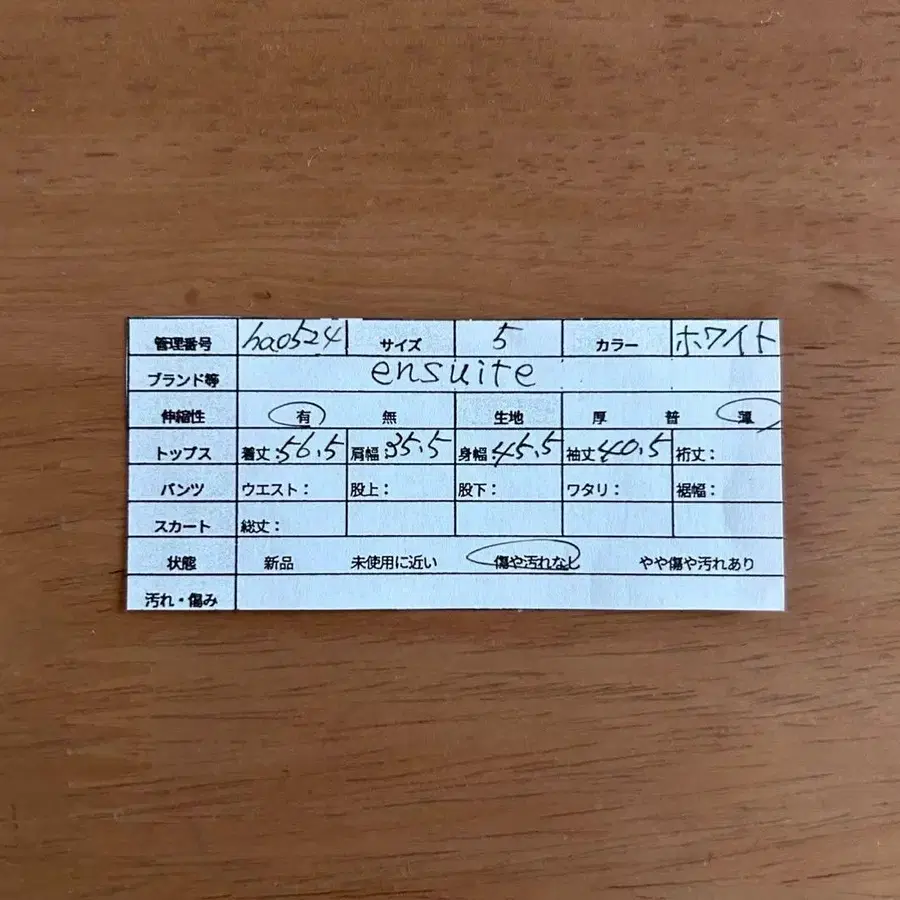 管理番号 ha0524 サイズ 5 カラー ホワイト
ブランド等 ensuite
伸縮性 有 無 生地 厚 普 薄
トップス 着丈:56.5 肩幅:35.5 身幅:45.5 袖丈40.5 裄丈:
パンツ ウエスト: 股上: 股下: ワタリ: 裾幅:
スカート 総丈:
状態 新品 未使用に近い 傷や汚れなし やや傷や汚れあり
汚れ・傷み